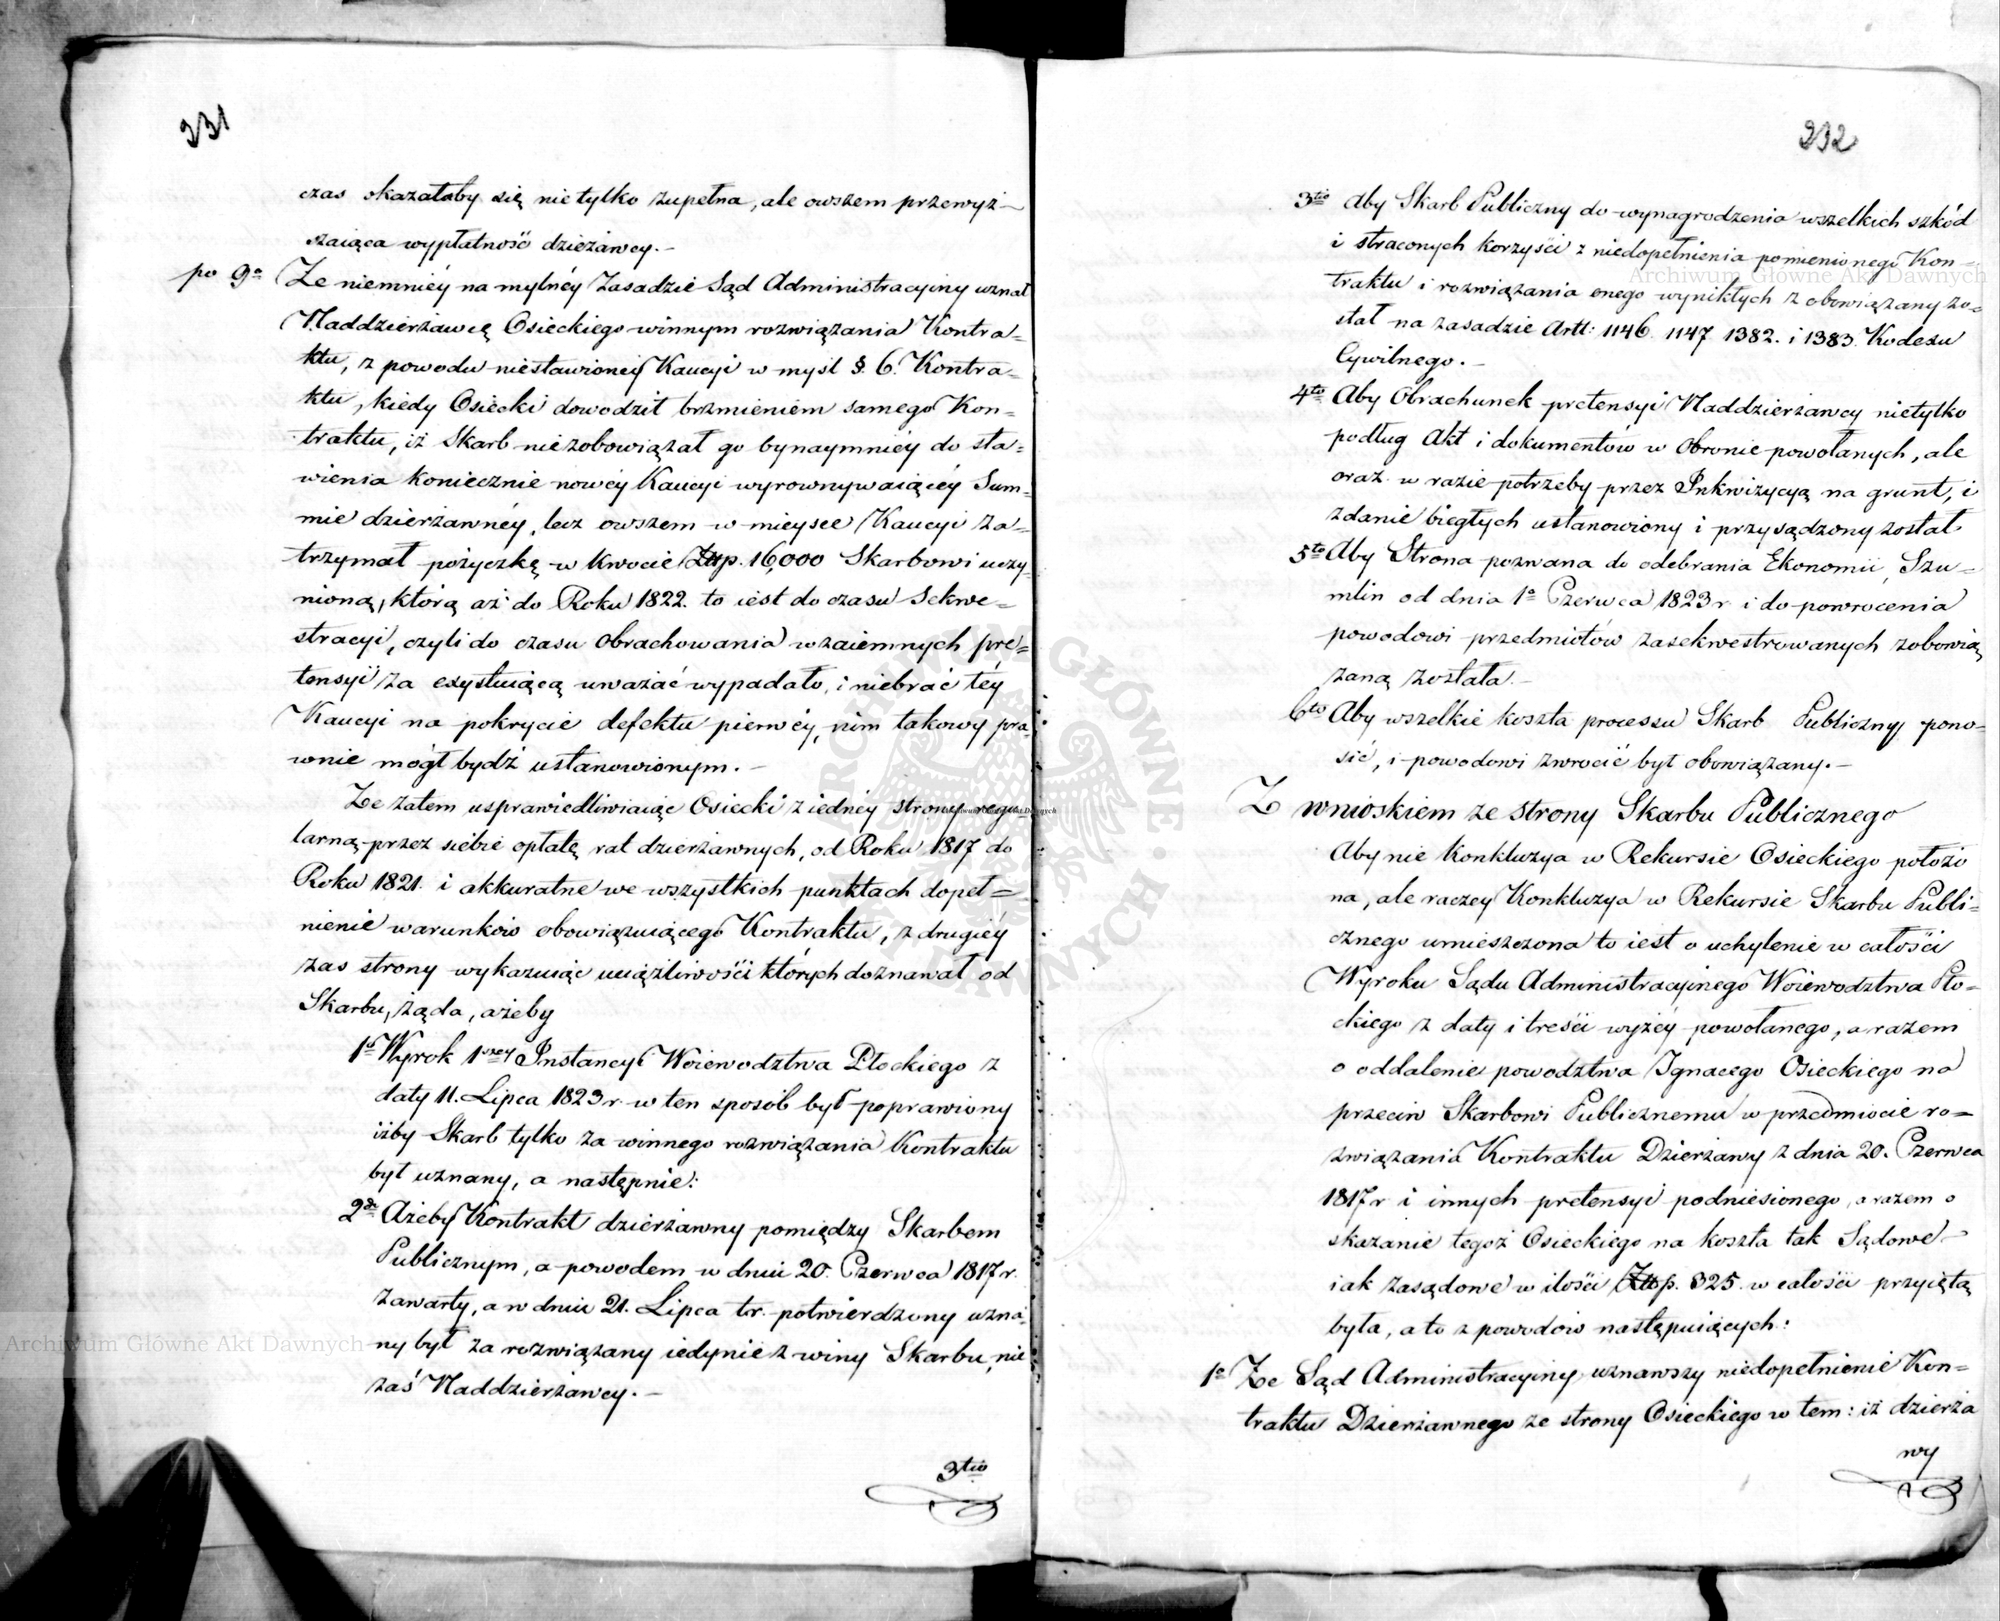 231
czas okazałaby się nietylko zupełna, ale owszem przewyż-
szaiąca wypłatność dzieżawcy.-
po 9o Ze niemniéy na mylnéy Zasadzie Sąd Administracyiny uznał
Naddzierżawcę Osieckiego winnym rozwiązania Kontra=
ktu, z powodu niestawionéy Kaucyi w mysl §. 6. Kontra=
ktu, kiedy Osiecki dowodził brzmieniem samego Kon=
traktu, iż Skarb niezobowiązał go bynaymniéy do sta=
wienia koniecznie nowéy Kaucyi wyrownywaiącéy Sum=
mie dzierżawnéy, lecz owszem w mieysce Kaucyi za=
trzymał pożyczkę w kwocie Złtp. 16,000 Skarbowi uczy-
nioną, którą aż do Roku 1822. to iest do czasu Sekwe=
stracyi, czyli do czasu Obrachowania wzaiemnych pre=
tensyi za exystuiącą uważać wypadało, i niebrać téy
Kaucyi na pokrycie defektu pierwéy, nim takowy pra-
wnie mógł bydź ustanowionym.-
Ze zatem usprawiedliwiaiąc Osiecki z iednéy strony regu
larną przez siebie opłatę rat dzierżawnych, od Roku 1817 do
Roku 1821. i akkuratne we wszystkich punktach dopeł=
nienie warunków obowiązuiącego Kontraktu, z drugiéy
zas strony wykazuiąc uciążliwości których doznawał od
Skarbu, żąda, ażeby
1o Wyrok 1széy Instancyi Woiewodztwa Płockiego z
daty 11. Lipca 1823 r. w ten sposób był poprawiony
iżby Skarb tylko za winnego rozwiązania Kontraktu
był uznany, a następnie:
2do Ażeby Kontrakt dzierżawny pomiędzy Skarbem
Publicznym, a powodem w dniu 20. Czerwca 1817 r.
zawarty, a w dniu 21. Lipca tr. potwierdzony uzna-
ny był za rozwiązany iedynie z winy Skarbu, nie
zaś Naddzierżawcy.-
3tio
232
3tio Aby Skarb Publiczny do wynagrodzenia wszelkich szkód
i straconych korzyści z niedopełnienia pomienionego Kon-
traktu i rozwiązania onego wynikłych zobowiązany zo=
stał na zasadzie Artt: 1146. 1147 1382. i 1383. Kodexu
Cywilnego.-
4to Aby Obrachunek pretensyi Naddzierżawcy nietylko
podług Akt i dokumentów w Obronie powołanych, ale
oraz w razie potrzeby przez Inkwizycyą na grunt, i
zdanie biegłych ustanowiony i przysądzony został
5to Aby Strona pozwana do odebrania Ekonomii Szu=
mlin od dnia 1o Czerwca 1823 r. i do powrocenia
powodowi przedmiotów zasekwestrowanych zobowią
zaną została.-
6to Aby wszelkie koszta processu Skarb Publiczny pono-
sić, i powodowi zwrócić był obowiązany.-
Z wnioskiem ze strony Skarbu Publicznego
Aby nie Konkluzya w Rekursie Osieckiego położo
na, ale raczey Konkluzya w Rekursie Skarbu Publi=
cznego umieszczona to iest o uchylenie w całości
Wyroku Sądu Administracyinego Woiewodztwa Pło=
ckiego z daty i treści wyżéy powołanego, a razem
o oddalenie powodztwa Ignacego Osieckiego na
przeciw Skarbowi Publicznemu w przedmiocie ro=
związania Kontraktu Dzierżawy z dnia 20. Czerwca
1817 r i innych pretensyi podniesionego, a razem o
skazanie tegoż Osieckiego na koszta tak Sądowe
iak zasądowe w ilości Złtp. 325. w całości przyiętą
była, a to z powodów następuiących:
1o Ze Sąd Administracyiny uznawszy niedopełnienie Kon=
traktu Dzierżawnego ze strony Osieckiego w tem: iż dzierża
wy
Archiwum Główne Akt Dawnych
Archiwum Główne Akt Dawnych
Archiwum Główne Akt Dawnych
ARCHIWUM GŁÓWNE AKT DAWNYCH